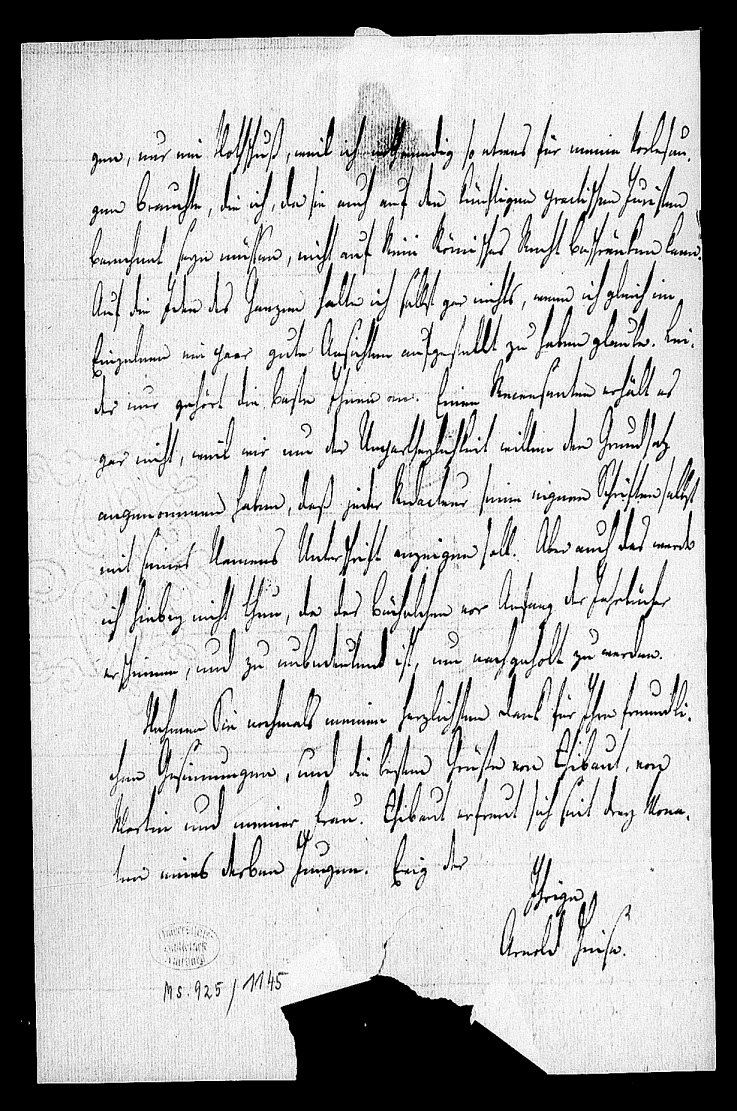 gen, nur ein Nothschuß, weil ich nothwendig so etwas für meine Vorlesun-
gen brauchte, die ich, da sie auch auf den künftigen practischen Juristen
berechnet seyn müssen, nicht auf rein Römisches Recht beschränken kann.
Auf die Idee des Ganzen halte ich selbst gar nichts, wenn ich gleich im
Einzelnen ein paar gute Ansichten aufgestellt zu haben glaube. Lei-
der nur gehört die beste Ihnen an. Einen Recensenten erhält es
gar nicht, weil wir um der Unpartheylichkeit willen den Grundsatz
angenommen haben, daß jeder Redacteur seine eignen Schriften selbst
mit seines Namens Unterschrift anzeigen soll. Aber auch das werde
ich hiebey nicht thun, da das Büchelchen vor Anfang der Jahrbücher
erschienen, und zu unbedeutend ist, um nachgeholt zu werden.
Nehmen Sie nochmals meinen herzlichsten Dank für Ihre freundli-
chen Gesinnungen, und die besten Grüße von Thibaut, von
Martin und meiner Frau. Thibaut erfreut sich seit drey Mona-
ten eines derben Jungen. Ewig der
Ihrige
Arnold Heise.
Universitäts-
Bibliothek
Marburg
Ms. 925/1145